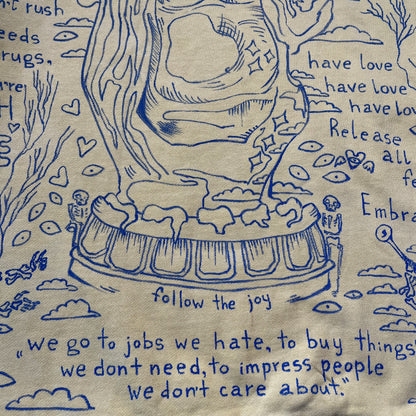 't rush
eeds
rugs,
have love
have love
have lov
Release
all
fe
Embra
follow the joy
„we go to jobs we hate, to buy things
we don't need, to impress people
we don't care about."